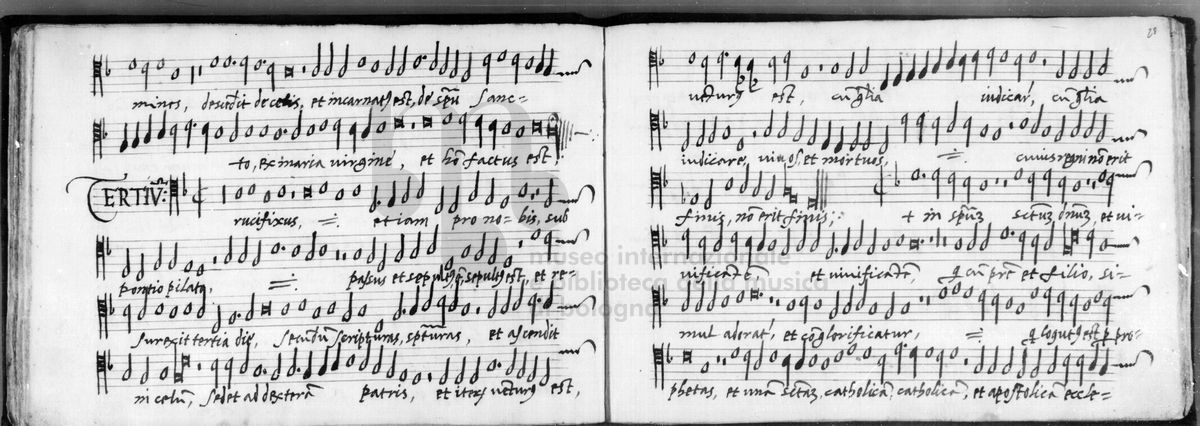 mines, descēdit de celis, et incarnatꝰ est, de spū Sanc=
to, ex maria virginē, et hō factus est
TERTIVS
rucifixus, et iam pro no= bis, sub
pontio pilato, passus et sepultꝰ, sepultꝰ est, et re=
surexit tertia die, secundū scripturas, sptūras, et ascendit
in celum, sedet ad dexterā patris, et iterū vēturꝰ est,
28
vēturꝰ est, cū glīa iudicar, cū glīa
iudicare, vivos, et mortuos, cuius regni nō erit
finis, nō erit finis; + in spūȝ sctūȝ dnūȝ, et vi=
vificātē, et vivificātē, q̄ cū prē et filio, si=
mul adorat, et cōglorificatur, q̄ loqutꝰ est ꝑ pro=
phetas, et unā sctam, catholicā, catholicā, et apostolicā eccle=
museo internazionale
e biblioteca della musica
di bologna